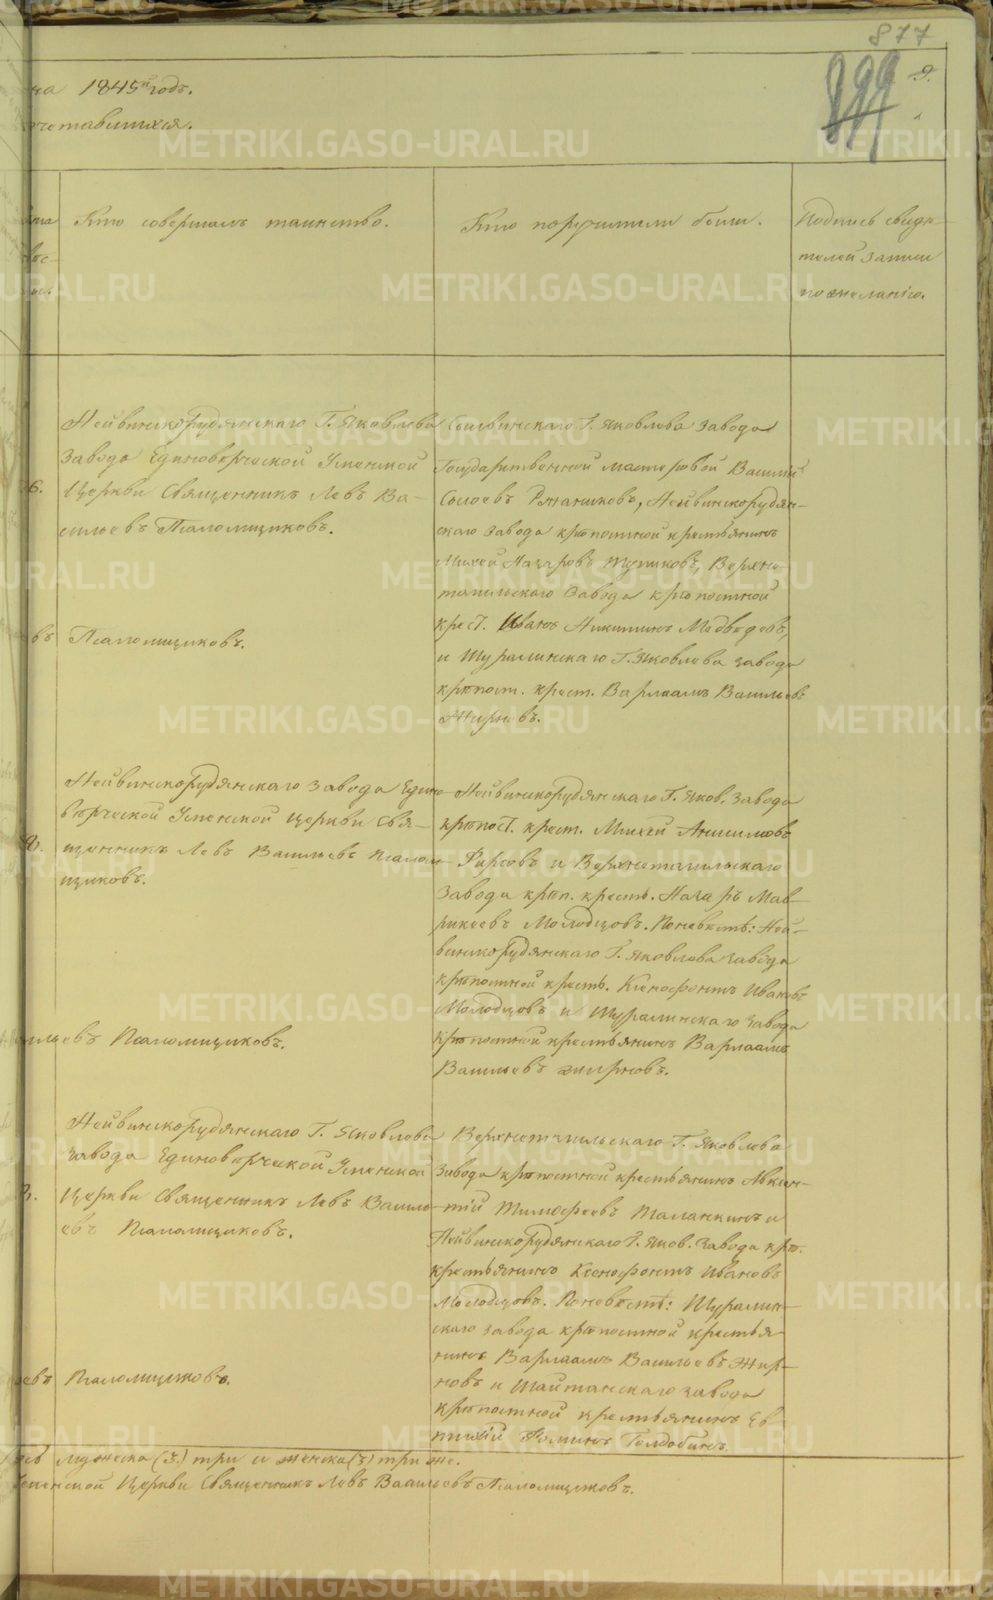 877
899
9.
на 1845й годъ.
четавшихся.
Кто совершалъ таинство.
Кто поручители были.
Подпись свидѣ-
телей записи
по желанію.
Нейвинскорудянскаго Г. Яковлева
завода Единовѣрческой Успенской
Церкви Священникъ Левъ Ва-
сильевъ Псаломщиковъ.
Псаломщиковъ.
Сылвинскаго Г. Яковлева завода
Государственной мастеровой Василій
Сысоевъ Нейвинскорудян-
скаго завода крѣпостной крестьянинъ
Михей Назаровъ Верхне-
тагильскаго завода крѣпостной
крест. Иванъ Никитинъ Медведевъ,
и Шуралинскаго Г. Яковлева завода
крѣпост. крест. Варлаамъ Васильевъ
Жирновъ.
Нейвинскорудянскаго завода Едино-
вѣрческой Успенской церкви Свя-
щенникъ Левъ Васильевъ Псалом-
щиковъ.
ильевъ Псаломщиковъ.
Нейвинскорудянскаго Г. Яков. завода
крѣпост. крест. Михей Анисимовъ
Фирсовъ и Верхнетагильскаго
завода крѣп. кресть. Назаръ Мав-
рикеевъ Молодцовъ. По невѣстѣ: Ней-
винскорудянскаго Г. Яковлева завода
крѣпостной кресть. Ксенофонтъ Ивановъ
Молодцовъ и Шуралинскаго завода
крѣпостной крестьянинъ Варлаамъ
Васильевъ Жирновъ.
Нейвинскорудянскаго Г. Яковлева
завода Единовѣрческой Успенской
Церкви Священникъ Левъ Василь-
евъ Псаломщиковъ.
евъ Псаломщиковъ.
Верхнетагильскаго Г. Яковлева
завода крѣпостной крестьянинъ Авксен-
тій Тимофеевъ Таланкинъ и
Нейвинскорудянскаго Г. Яков. завода крѣп.
крестьянинъ Ксенофонтъ Ивановъ
Молодцовъ. По невѣстѣ: Шуралин-
скаго завода крѣпостной крестья-
нинъ Варлаамъ Васильевъ Жир-
новъ и Шайтанскаго завода
крѣпостной крестьянинъ Ев-
тихій Фоминъ Голдобинъ.
мужеска (3.) три и женска (3) три же.
Успенской Церкви Священникъ Левъ Васильевъ Псаломщиковъ.
METRIKI.GASO-URAL.RU